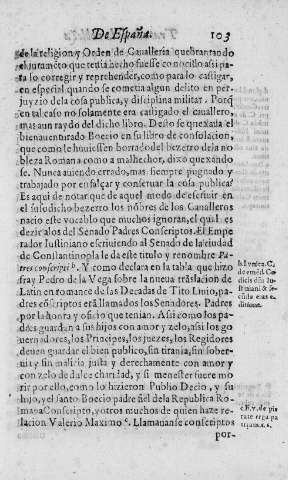 De España. 103
de la religion, y Orden de Caualleria quebrantando
el juramēto que tenia hecho fuesse conocido assi pa-
ra lo corregir y reprehender, como para lo castigar,
en especial quando se cometia algun delito en per-
juyzio dela cosa publica, y disciplina militar. Porq̄
en tal caso no solamente era castigado el cauallero,
mas aun raydo del dicho libro. Desto se quexaua el
bienauenturado Boecio en su libro de consolacion,
que como le huuiessen borrado del bezerro dela no
bleza Romana como a malhechor, dixo quexando
se. Nunca auiendo errado, mas siempre pugnado y
trabajado por ensalçar y conseruar la cosa publica.
Es aqui de notar que de aquel modo de escriuir en
el susodicho bezerro los nōbres de los Caualleros
nacio este vocablo que muchos ignoran, el qual es
dezir a los del Senado Padres Conscriptos. El Empe
rador Iustiniano escriuiendo al Senado de la ciudad
de Constantinopla le da este titulo y renombre Pa-
tres conscripti b. Y como declara en la tabla que hizo
fray Pedro de la Vega sobre la nueua traslacion de
Latin en romance de las Decadas de Tito Liuio, pa-
dres cōscriptos erā llamados los Senadores. Padres
por la honra y oficio que tenian. Assi como los pa-
dres guardan a sus hijos con amor y zelo, assi los go
uernadores, los Principes, los juezes, los Regidores
deuen guardar el bien publico, sin tirania, sin sober-
uia y sin malicia justa y derechamente con amor y
con zelo de dulce charidad, y si menester fuere mo
rir por ello, como lo hizieron Publio Decio, y su
hijo, y el santo Boecio padre fiel de la Republica Ro-
mana Conscripto, y otros muchos de quien haze re
lacion Valerio Maximo c. Llamauanse conscriptos
por-
b l. vnica. C.
de emēd. Co
dicis dñi Iu-
stiniani & se-
cūda eius e-
ditione.
c li. 5. de pie
tate erga pa